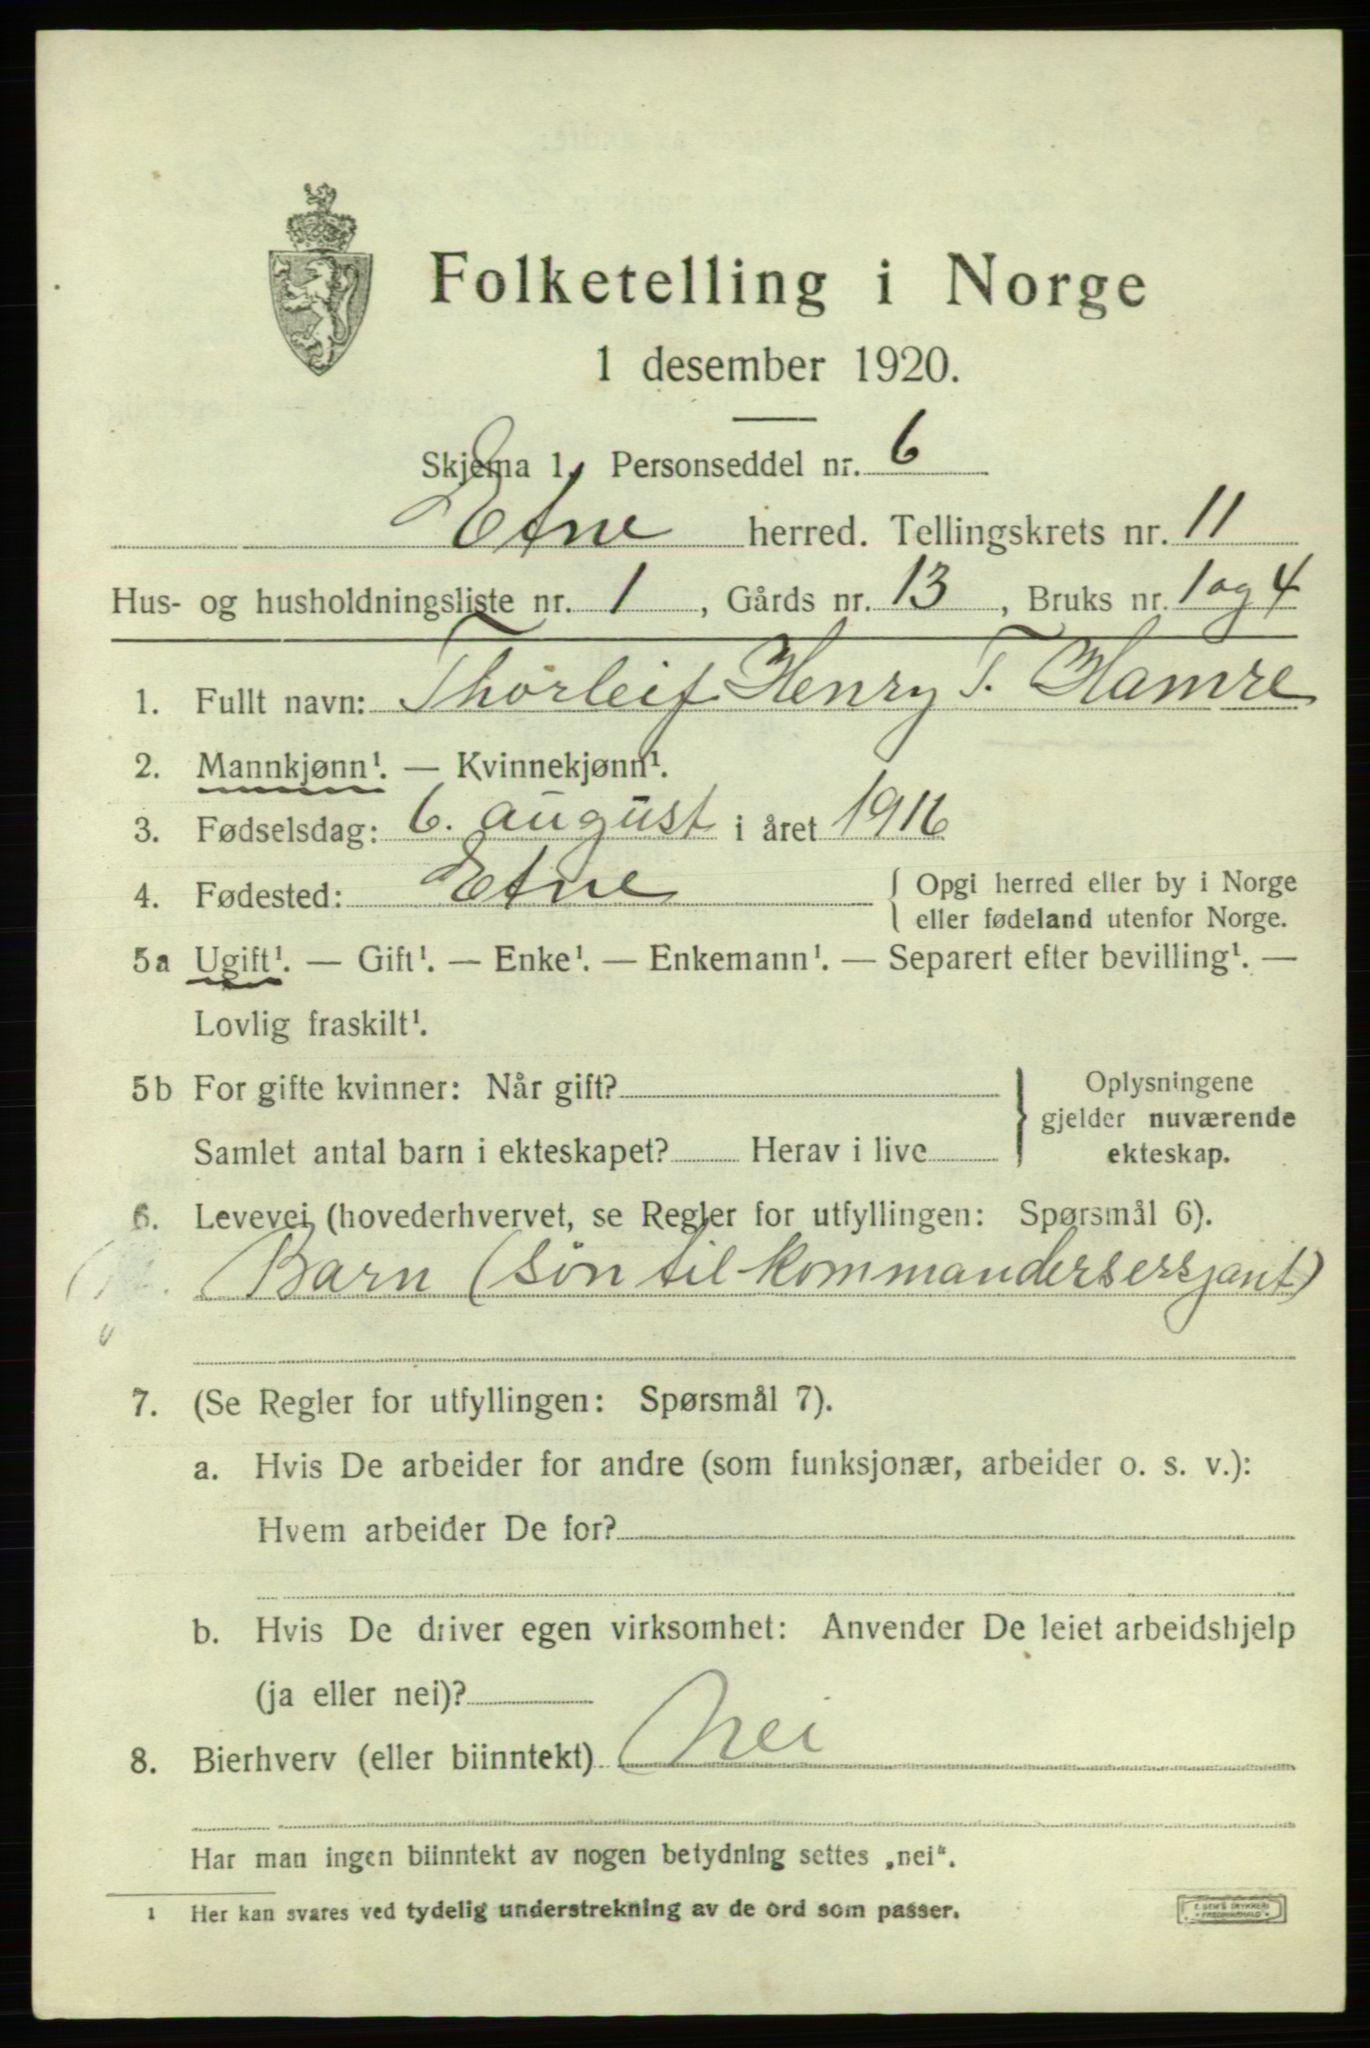 Folketelling i Norge
1 desember 1920.
Skjema 1. Personseddel nr. 6
Etne herred. Tellingskrets nr. 11
Hus- og husholdningsliste nr. 1, Gårds nr. 13, Bruks nr. 1 og 4
1. Fullt navn: Thorleif Henry T. Hamre
2. Mannkjønn¹. — Kvinnekjønn¹.
3. Fødselsdag: 6. august i året 1916
4. Fødested: Etne { Opgi herred eller by i Norge
eller fødeland utenfor Norge.
5a Ugift¹. — Gift¹. — Enke¹. — Enkemann¹. — Separert efter bevilling¹. —
Lovlig fraskilt¹.
5b For gifte kvinner: Når gift? } Oplysningene
gjelder nuværende
Samlet antal barn i ekteskapet? Herav i live ekteskap.
6. Levevei (hovederhvervet, se Regler for utfyllingen: Spørsmål 6).
Barn (søn til kommandersersjant)
7. (Se Regler for utfyllingen: Spørsmål 7).
a. Hvis De arbeider for andre (som funksjonær, arbeider o. s. v.):
Hvem arbeider De for?
b. Hvis De driver egen virksomhet: Anvender De leiet arbeidshjelp
(ja eller nei)?
8. Bierhverv (eller biinntekt) Nei
Har man ingen biinntekt av nogen betydning settes „nei“.
1 Her kan svares ved tydelig understrekning av de ord som passer.